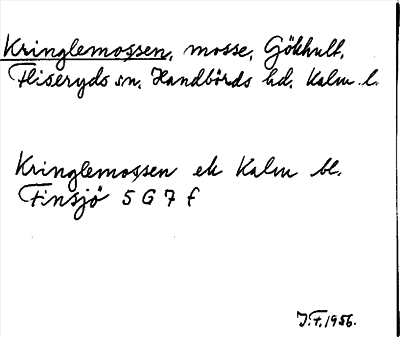 Kringlemossen, mosse, Gökhult,
Fliseryds sn, Handbörds hd, Kalm. l.
Kringlemossen ek Kalm bl.
Finsjö 5 G 7 f
J.F. 1956.